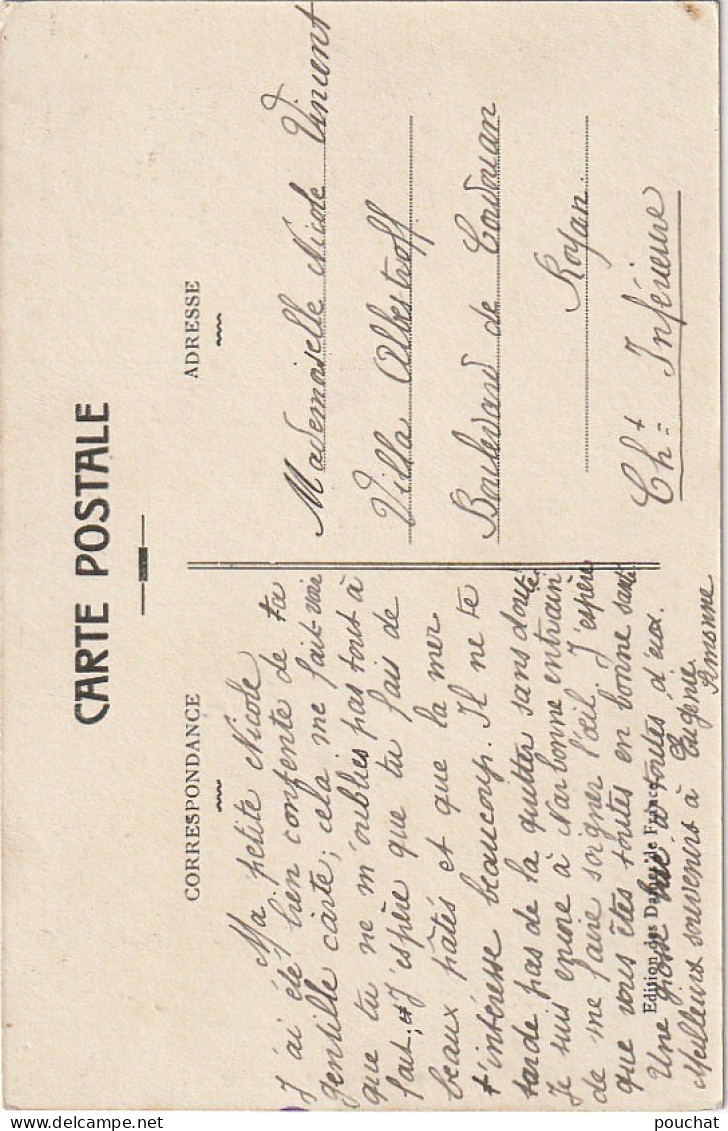 CARTE POSTALE
CORRESPONDANCE
Ma petite Nicole,
J'ai été bien contente de ta
gentille carte; cela me fait voir
que tu ne m'oublies pas tout à
fait; et j'espère que tu fais de
beaux pâtés et que la mer
t'intéresse beaucoup. Il ne te
tarde pas de la quitter sans doute.
Je suis encore à Narbonne entrain
de me faire soigner l'œil. J'espère
que vous êtes toutes en bonne santé
Une grosse bise à toutes d'eux.
Meilleurs souvenirs à Eugénie.
Edition des Dames de France
ADRESSE
Mademoiselle Nicole Vincent
Villa Albestroff
Boulevard de Cordouan
Royan
Cht= Inférieure
pouchat